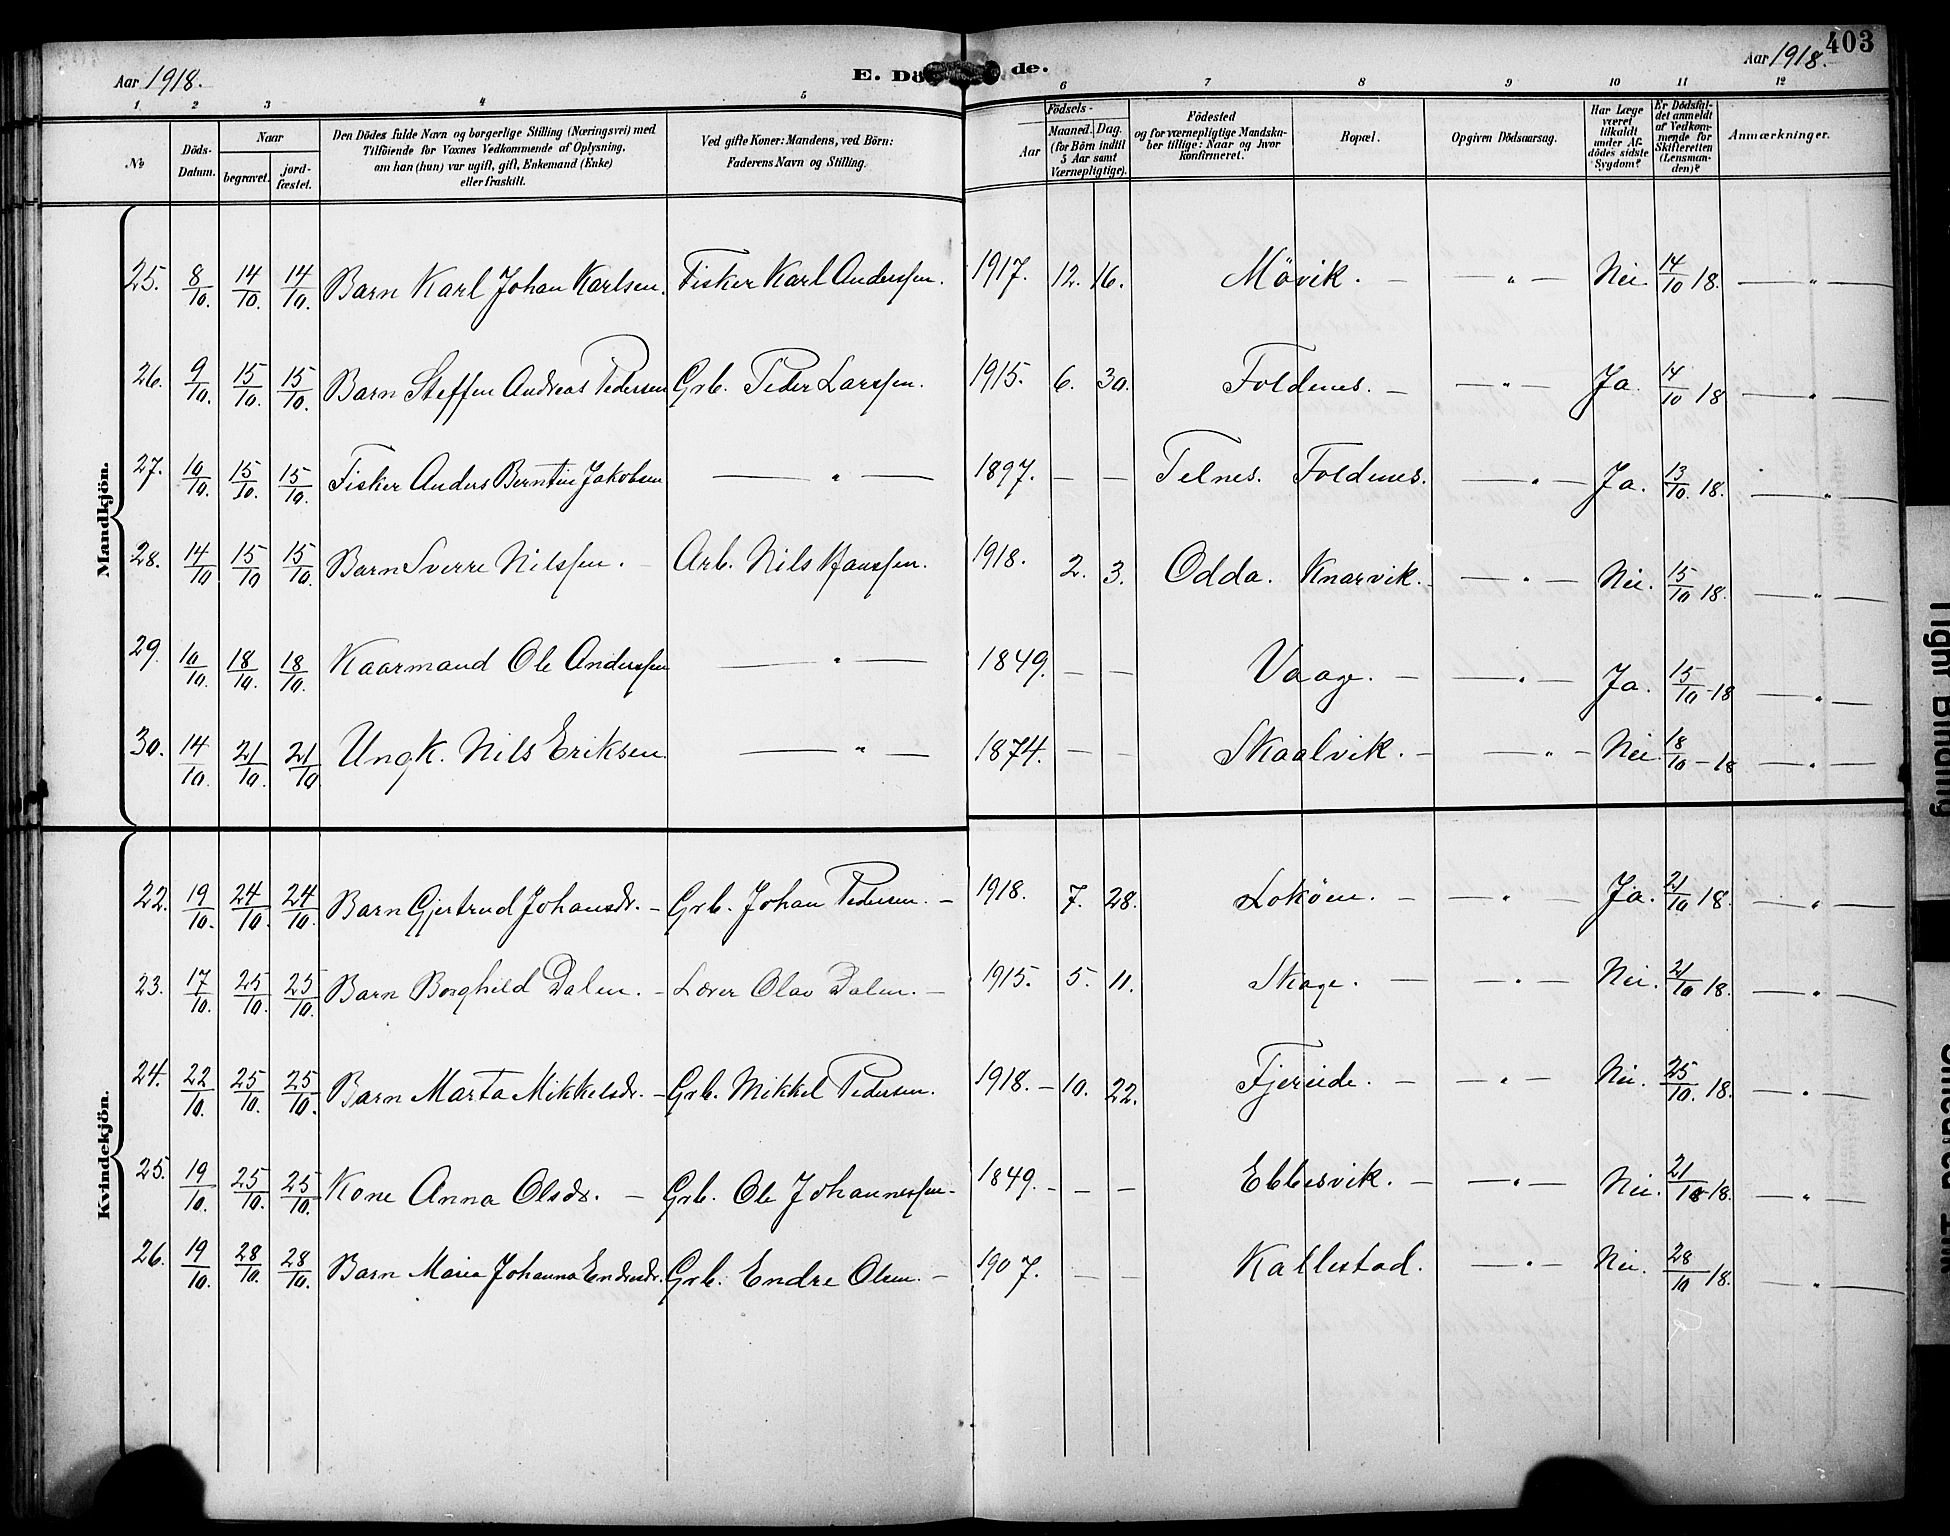 403
Aar 1918. E. Dö de. Aar 1918.
1 2 3 4 5 6 7 8 9 10 11 12
No
Döds-Datum.
Naar begravet. jord-fæstet.
Den Dödes fulde Navn og borgerlige Stilling (Næringsvei) med
Tilföiende for Voxnes Vedkommende af Oplysning,
om han (hun) var ugift, gift, Enkemand (Enke)
eller fraskilt.
Ved gifte Koner: Mandens, ved Börn:
Faderens Navn og Stilling.
Födsels-
Aar Maaned. Dag.
(for Börn indtil
5 Aar samt
Værnepligtige).
Födested
og for værnepligtige Mandska-
ber tillige: Naar og hvor
konfirmeret.
Bopæl.
Opgiven Dödsaarsag.
Har Læge
været
tilkaldt
under Af-
dödes sidste
Sygdom?
Er Dödsfal-
det anmeldt
af Vedkom-
mende for
Skifteretten
(Lensman-
den)?
Anmærkninger.
Mandkjön.
25. 8/10. 14/10. 14/10. Barn Karl Johan Karlsen. Fisker Karl Anderssen. 1917. 12. 16. Mövik. — — " — Nei. 14/10 18. — " —
26. 9/10. 15/10. 15/10. Barn Steffen Andreas Pedersen Grb. Peder Larssen. 1915. 6. 30. Foldenes. — — " — Ja. 14/10 18 — " —
27. 10/10. 15/10. 15/10. Fisker Anders Berntin Jakobsen — " — 1897. — — Telnes. Foldenes. — " — Ja. 13/10. 18. — " —
28. 14/10 15/10 15/10. Barn Sverre Nilssen. — Arb. Nils Hanssen. 1918. 2. 3. Odda. Knarvik. — " — Nei. 15/10 18. — " —
29. 10/10. 18/10. 18/10. Kaarmand Ole Anderssen — " — 1849. — — Vaage. — — " — Ja. 15/10-18 — " —
30. 14/10. 21/10. 21/10 Ungk. Nils Eriksen. — " — 1874. — — Skaalvik. — — " — Nei. 18/10-18 — " —
Kvindekjön.
22. 19/10. 24/10. 24/10. Barn Gjertrud Johansdr. — Grb. Johan Pedersen. — 1918. 7. 28. Loköen. — — " — Ja. 21/10 18. — " —
23. 17/10. 25/10. 25/10. Barn Borghild Dalen. — Lærer Olav Dalen. — 1915. 5. 11. Skage. — — " — Nei. 21/10 18. — " —
24. 22/10. 25/10. 25/10. Barn Marta Mikkelsdr. — Grb. Mikkel Pedersen. 1918. — 10. 22. Fjereide. — — " — Nei. 25/10. 18. — " —
25. 19/10. 25/10. 25/10. Kone Anna Olsdr. — Grb. Ole Johannessen — 1849. — — — Ebbesvik. — — " — Nei. 21/10-18. — " —
26. 19/10. 28/10. 28/10. Barn Maria Johanna Endresdr. Grb. Endre Olsen. — 1907. — — Kallestad. — " — Nei. 28/10 18. — " —
Tight Binding